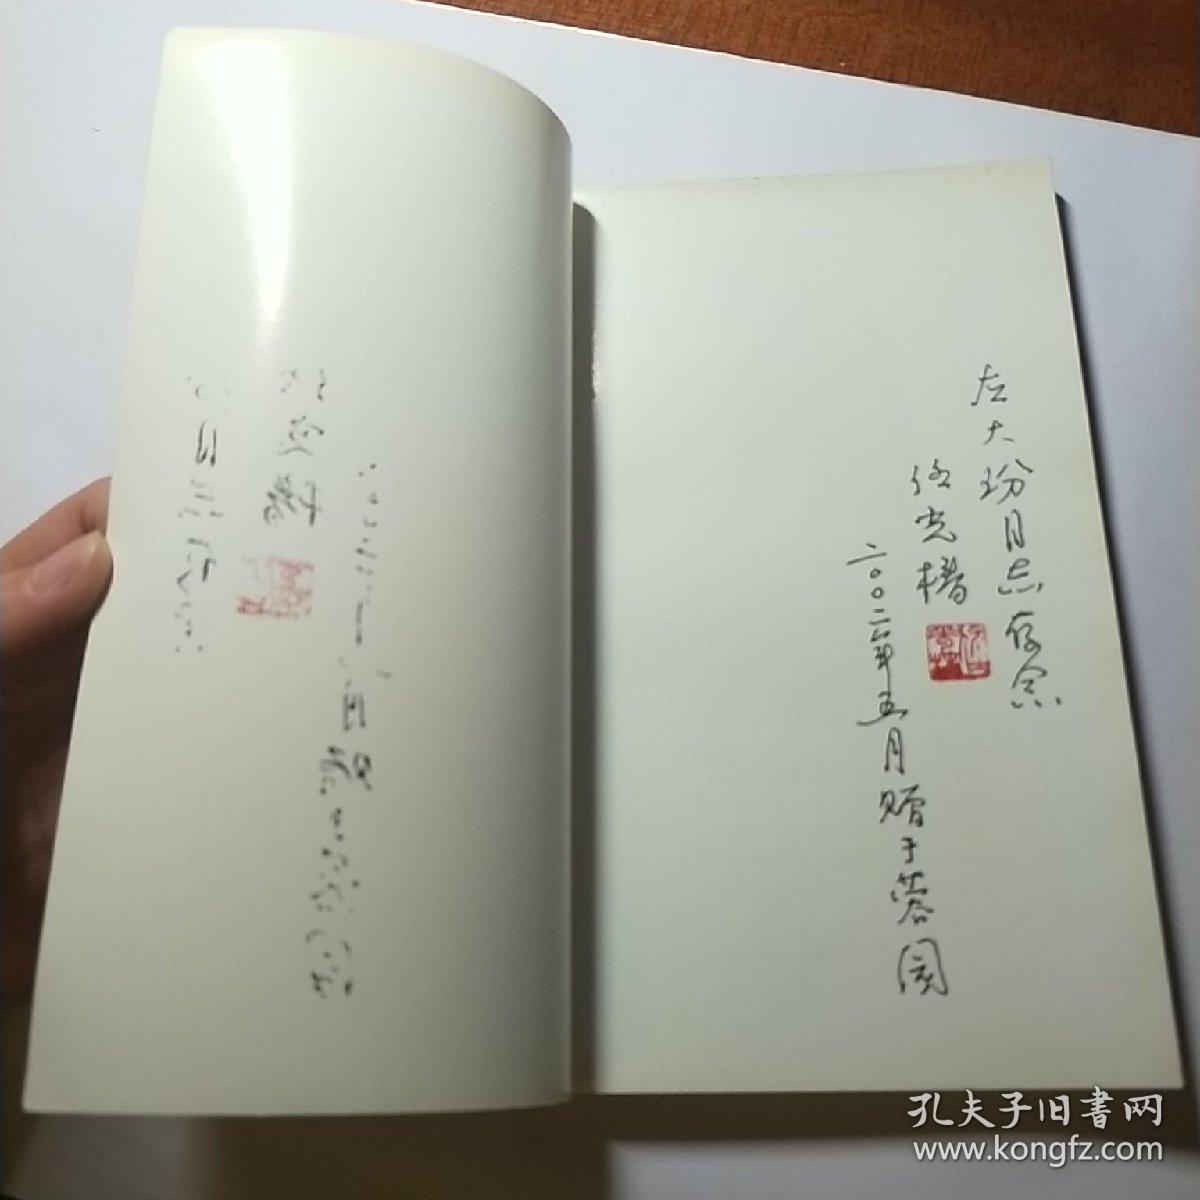 左大玢同志存念
任光椿
二〇〇二年五月赠于蓉园
孔夫子旧書网
www.kongfz.com